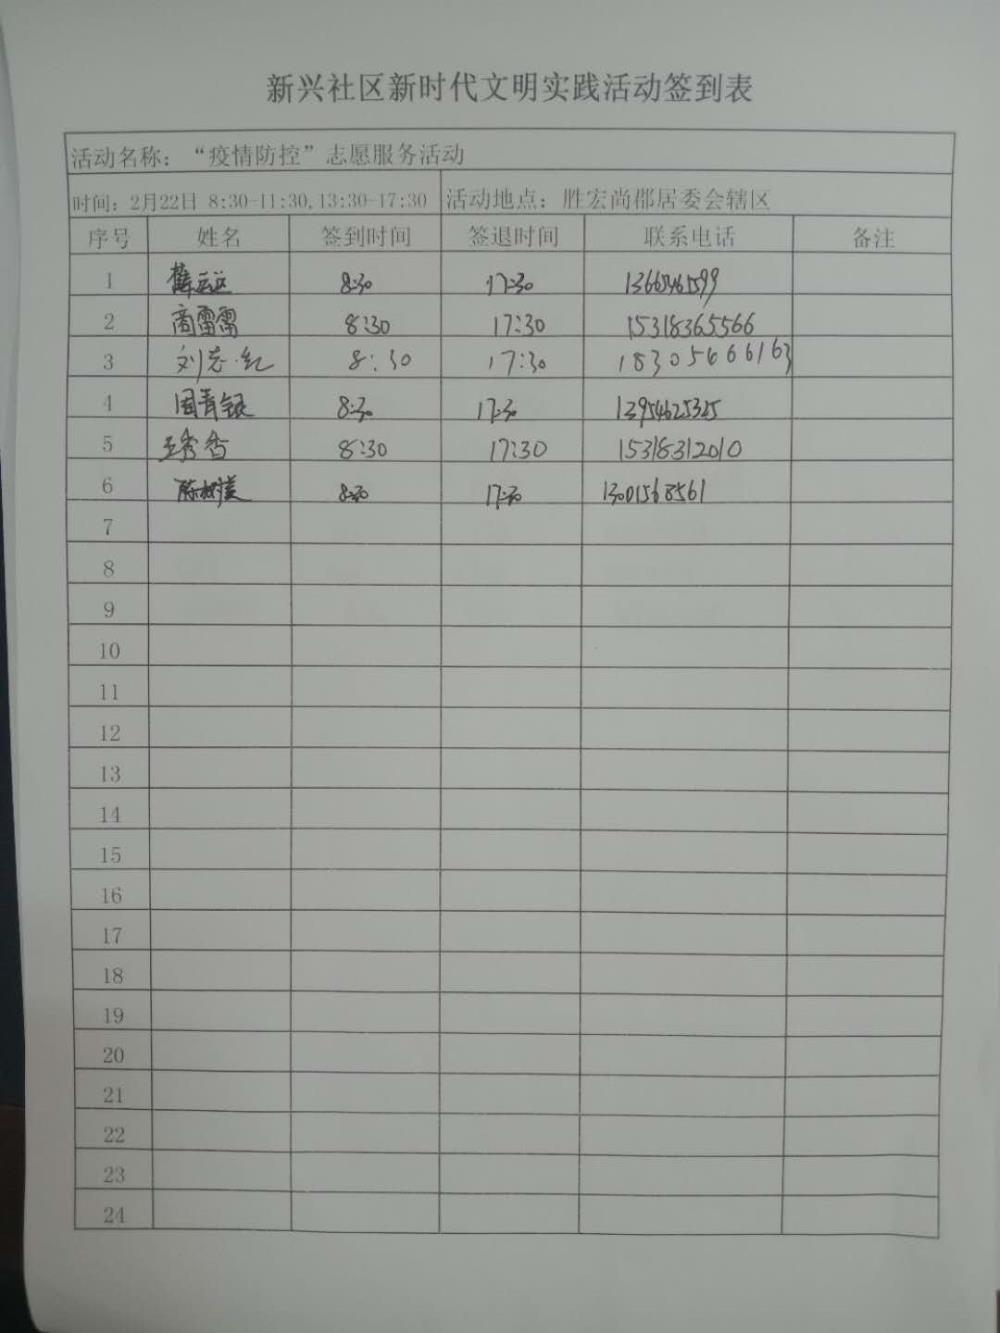 新兴社区新时代文明实践活动签到表
活动名称：“疫情防控”志愿服务活动
时间：2月22日 8:30-11:30,13:30-17:30 活动地点：胜宏尚郡居委会辖区
序号 姓名 签到时间 签退时间 联系电话 备注
1 8:30 17:30
2 商雷雷 8:30 17:30 15318365566
3 刘志红 8:30 17:30 18305466163
4 国青银 8:30 17:30 13954625325
5 王秀香 8:30 17:30 15318312010
6 陈树美 8:30 17:30 13001568561
7
8
9
10
11
12
13
14
15
16
17
18
19
20
21
22
23
24